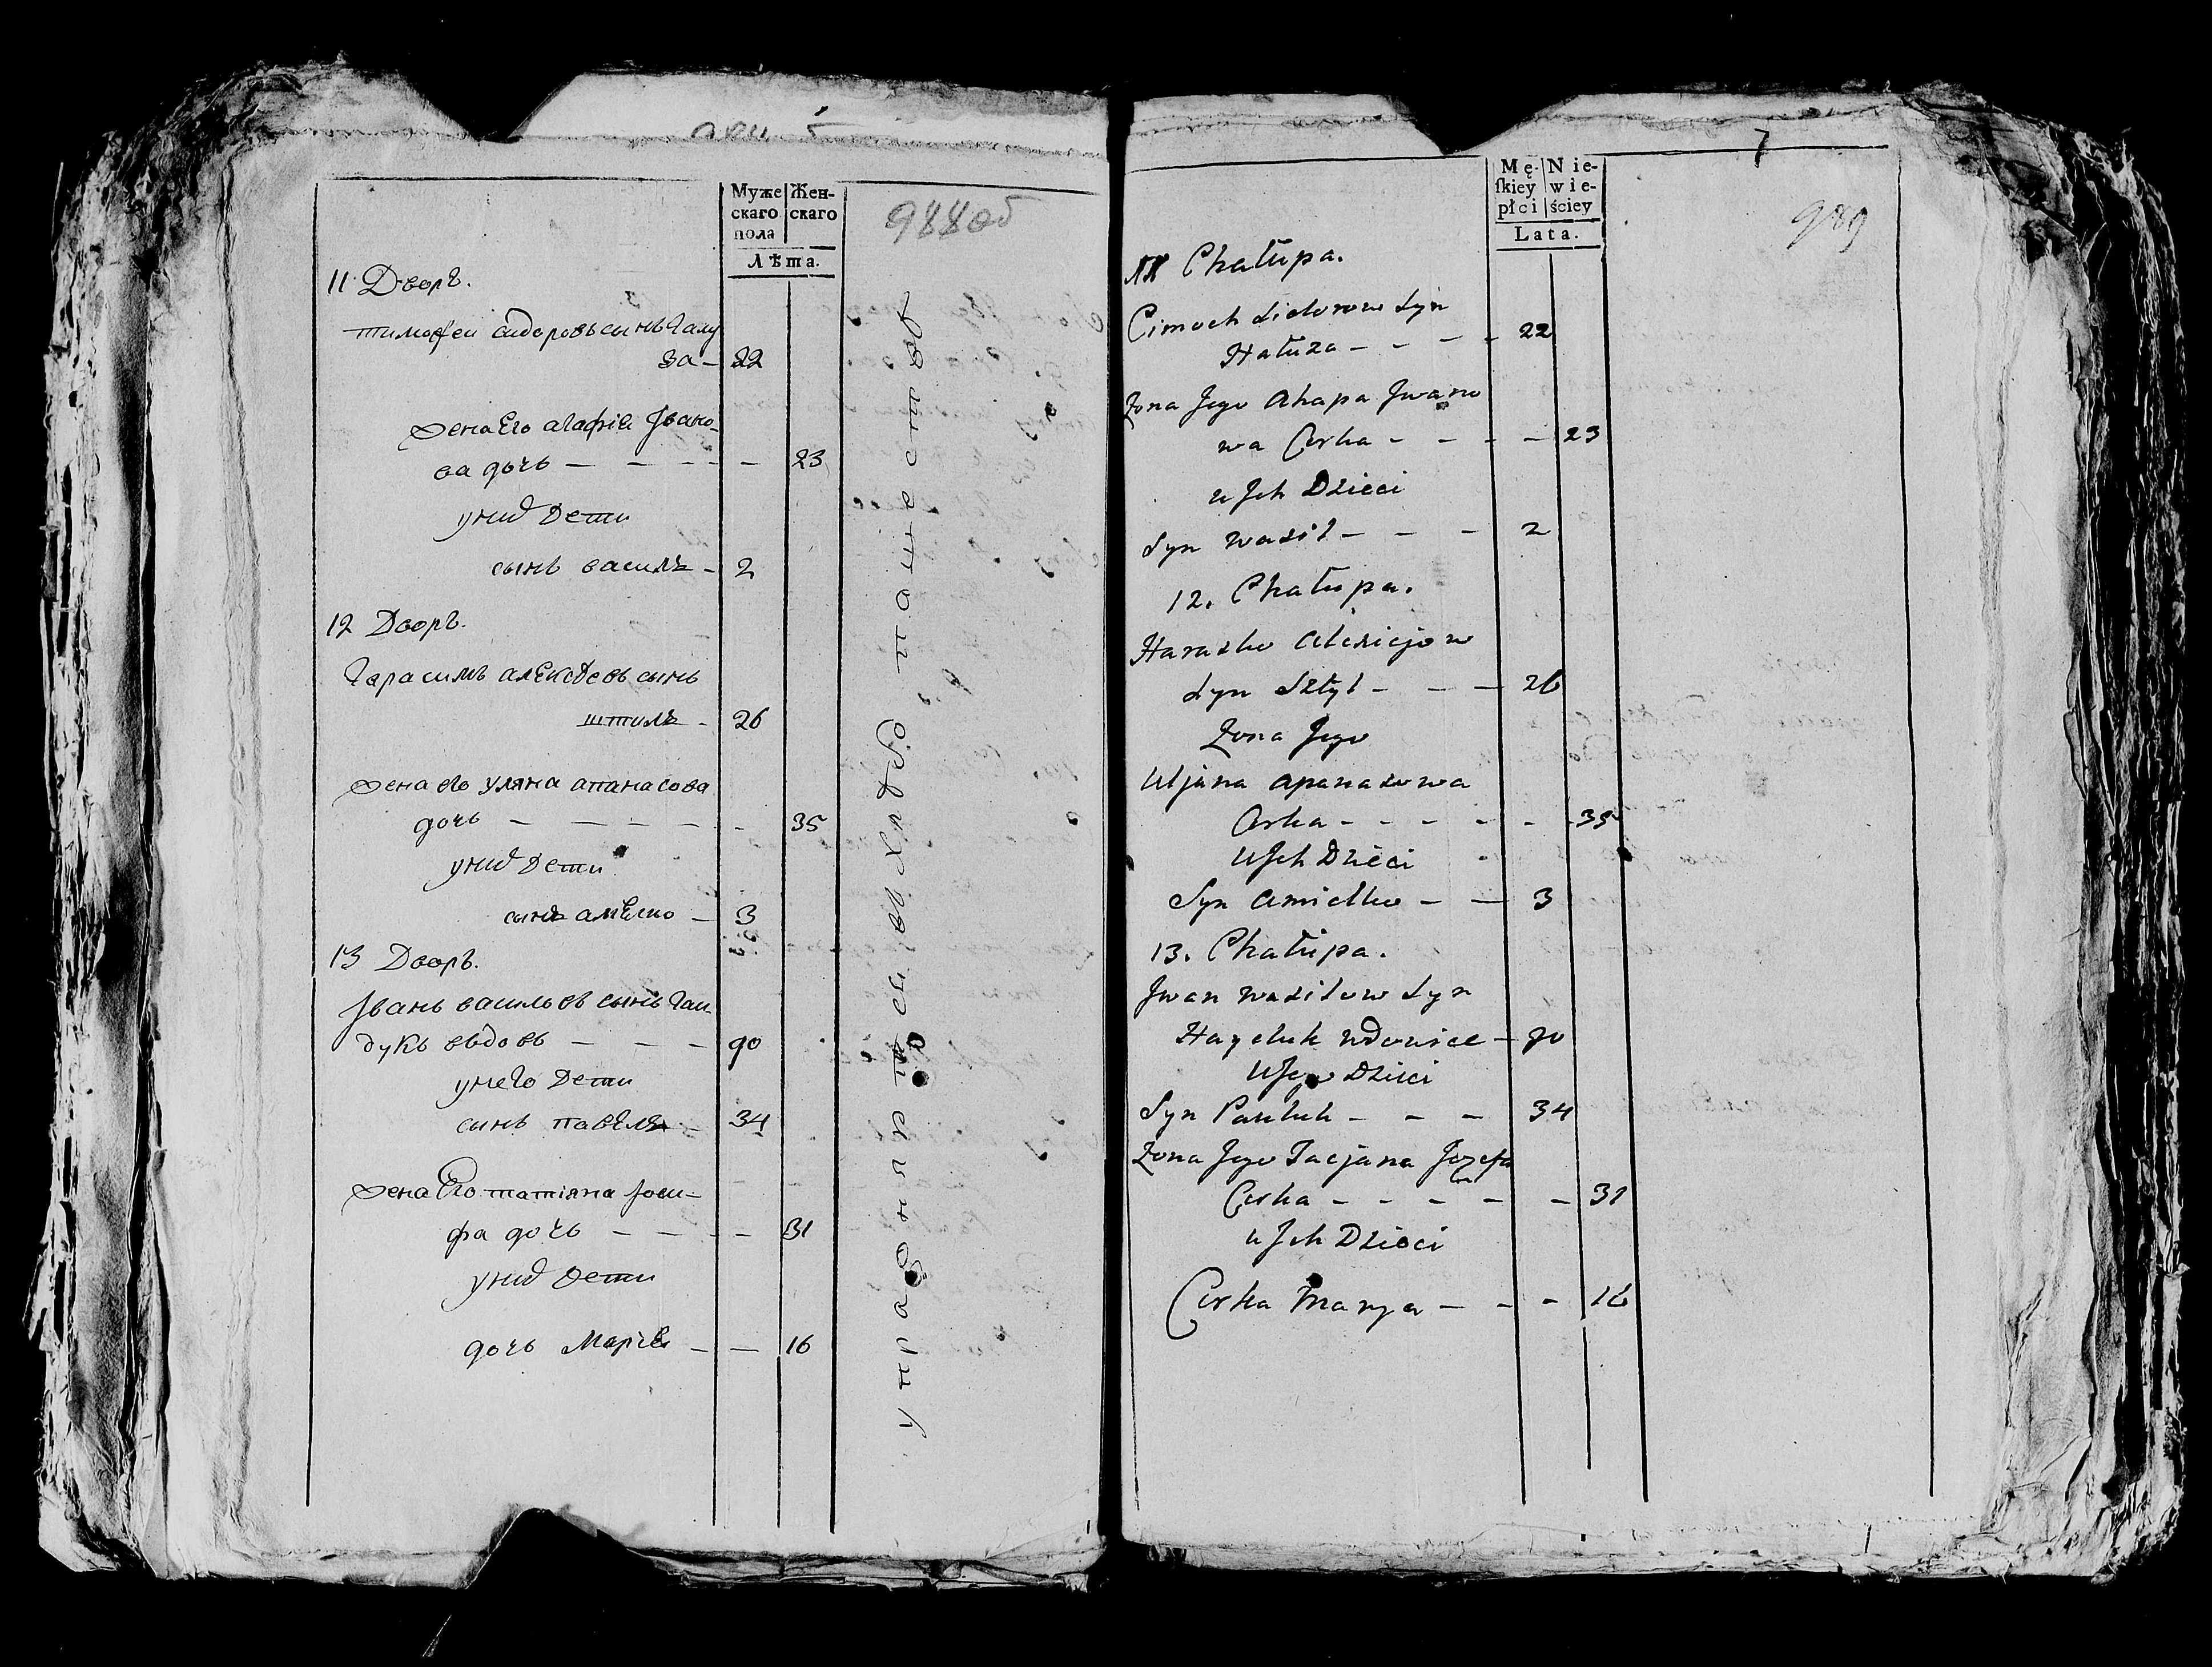 988об
Муже
скаго
пола
Жен-
скаго
Лѣта.
11 Дворъ.
тимофеи сидоровъ сынъ Галу
за — 22
жена Его агафія Iвано-
ва дочь — — — — 23
у них Дети
сынъ василъ — 2
12 Дворъ.
Гарасимъ алексѣевъ сынъ
штилъ — 26
жена его уляна апанасова
дочь — — — — 35
у них Дети
сынъ амелко — 3
13 Дворъ.
Iванъ васильевъ сынъ Гаи-
дукъ вдовъ — — — 90
у него Дети
сынъ павелъ — 34
жена Его татіяна Iоси-
фа дочь — — — — 31
у них Дети
дочь Марія — — 16
7
989
Mę-
ſkiey
płci
Nie-
wie-
ściey
Lata.
11 Chałupa.
Cimoch Sidorow Syn
Hałuza — — — — 22
Zona Jego Ahapa Jwano
wa Corka — — — — 23
u Jch Dzieci
Syn Wasil — — — 2
12. Chałupa.
Harasko Alexiejow
Syn Sztyl — — — 26
Zona Jego
Uljana Apanasowa
Corka — — — — — 35
U Jch Dzieci
Syn Amielko — — 3
13. Chałupa.
Jwan Wasilow Syn
Hayduk Wdowiec — 90
U Jego Dzieci
Syn Pawluk — — — 34
Zona Jego Tacjana Jozefa
Corka — — — — — 31
u Jch Dzieci
Corka Marya — — — 16